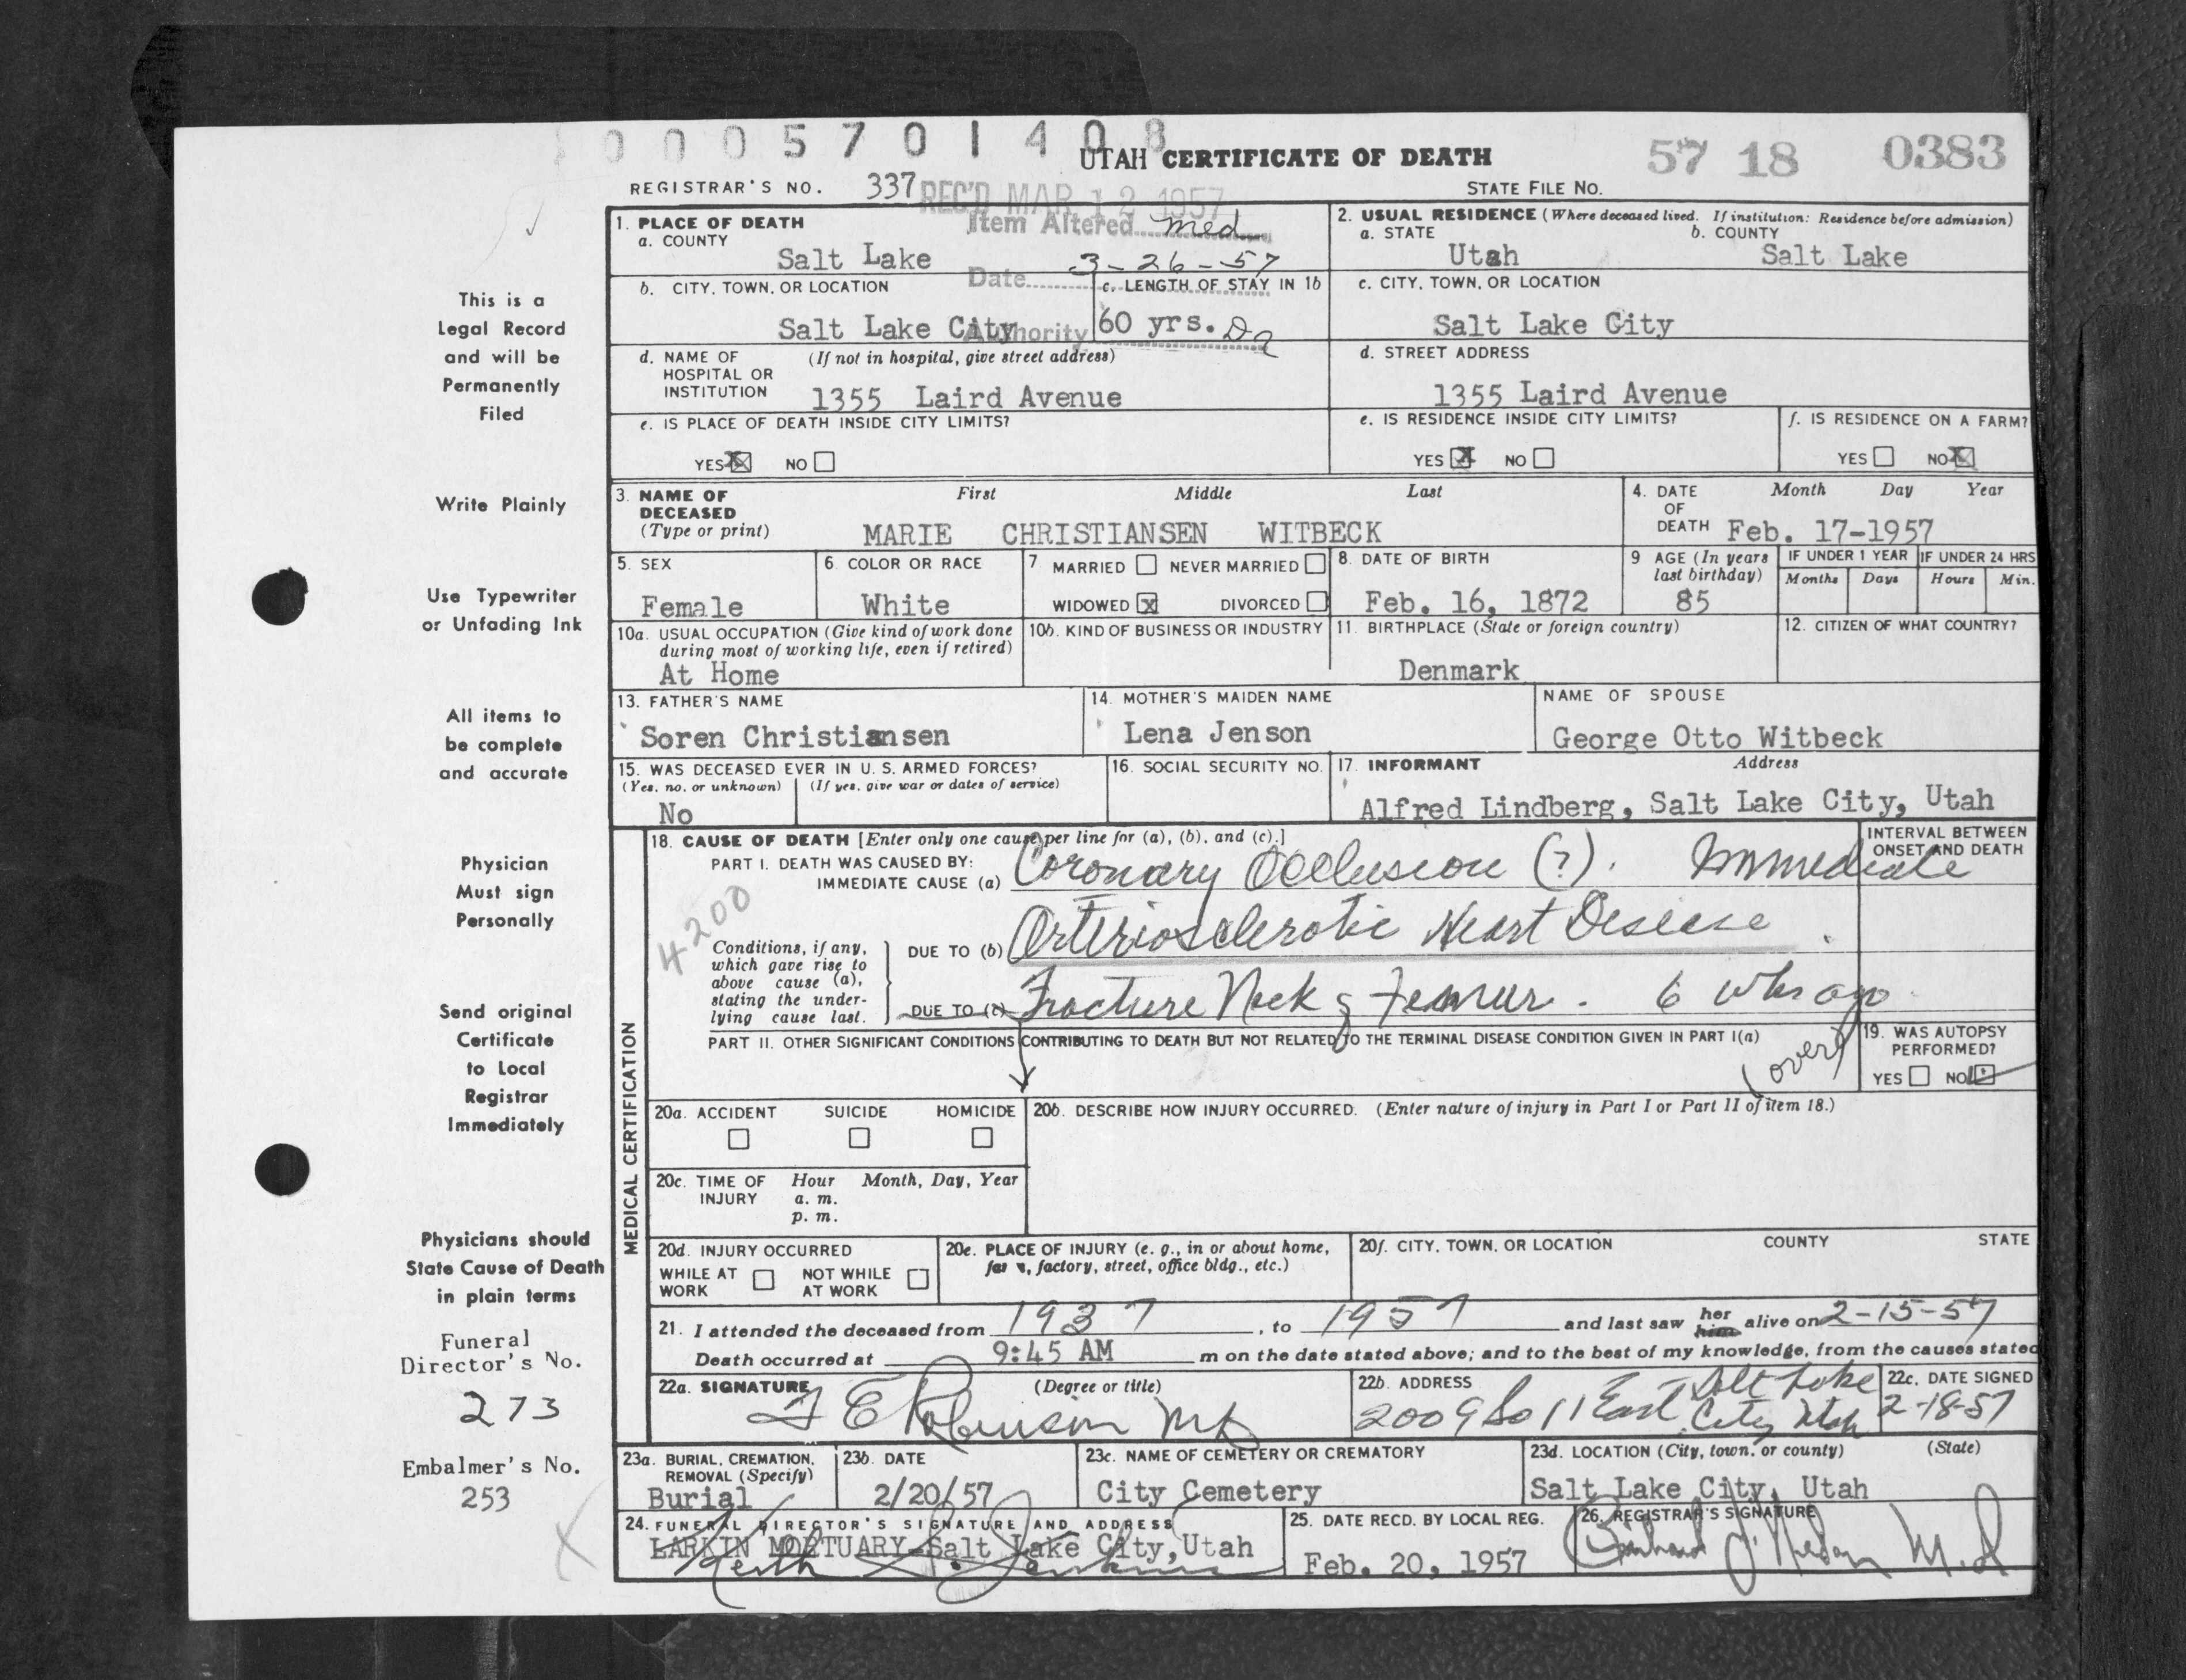 0005701408
UTAH CERTIFICATE OF DEATH
57 18 0383
REGISTRAR'S NO. 337
REC'D MAR 12 1957
STATE FILE NO.
Item Altered med
Date 3-26-57
Authority
1. PLACE OF DEATH
a. COUNTY
Salt Lake
2. USUAL RESIDENCE (Where deceased lived. If institution: Residence before admission)
a. STATE
Utah
b. COUNTY
Salt Lake
b. CITY, TOWN, OR LOCATION
Salt Lake City
c. LENGTH OF STAY IN 1b
60 yrs.
c. CITY, TOWN, OR LOCATION
Salt Lake City
d. NAME OF (If not in hospital, give street address)
HOSPITAL OR
INSTITUTION 1355 Laird Avenue
d. STREET ADDRESS
1355 Laird Avenue
e. IS PLACE OF DEATH INSIDE CITY LIMITS?
YES X NO
e. IS RESIDENCE INSIDE CITY LIMITS?
YES X NO
f. IS RESIDENCE ON A FARM?
YES NO X
3. NAME OF
DECEASED
(Type or print)
First Middle Last
MARIE CHRISTIANSEN WITBECK
4. DATE
OF
DEATH
Month Day Year
Feb. 17-1957
5. SEX
Female
6. COLOR OR RACE
White
7 MARRIED NEVER MARRIED
WIDOWED X DIVORCED
8. DATE OF BIRTH
Feb. 16, 1872
9 AGE (In years
last birthday)
85
IF UNDER 1 YEAR
Months Days
IF UNDER 24 HRS
Hours Min.
10a. USUAL OCCUPATION (Give kind of work done
during most of working life, even if retired)
At Home
10b. KIND OF BUSINESS OR INDUSTRY
11. BIRTHPLACE (State or foreign country)
Denmark
12. CITIZEN OF WHAT COUNTRY?
13. FATHER'S NAME
Soren Christiansen
14. MOTHER'S MAIDEN NAME
Lena Jenson
NAME OF SPOUSE
George Otto Witbeck
15. WAS DECEASED EVER IN U. S. ARMED FORCES?
(Yes, no, or unknown) (If yes, give war or dates of service)
No
16. SOCIAL SECURITY NO.
17. INFORMANT Address
Alfred Lindberg, Salt Lake City, Utah
MEDICAL CERTIFICATION
18. CAUSE OF DEATH [Enter only one cause per line for (a), (b), and (c).]
INTERVAL BETWEEN
ONSET AND DEATH
PART I. DEATH WAS CAUSED BY:
IMMEDIATE CAUSE (a) Coronary Occlusion (?). Immediate
4200
Conditions, if any,
which gave rise to
above cause (a),
stating the under-
lying cause last.
DUE TO (b) Arteriosclerotic Heart Disease
DUE TO (c) Fracture Neck of Femur. 6 wks ago
PART II. OTHER SIGNIFICANT CONDITIONS CONTRIBUTING TO DEATH BUT NOT RELATED TO THE TERMINAL DISEASE CONDITION GIVEN IN PART I(a)
(over)
19. WAS AUTOPSY
PERFORMED?
YES NO
20a. ACCIDENT SUICIDE HOMICIDE
20b. DESCRIBE HOW INJURY OCCURRED. (Enter nature of injury in Part I or Part II of item 18.)
20c. TIME OF INJURY
Hour Month, Day, Year
a. m.
p. m.
20d. INJURY OCCURRED
WHILE AT WORK
NOT WHILE AT WORK
20e. PLACE OF INJURY (e. g., in or about home,
farm, factory, street, office bldg., etc.)
20f. CITY, TOWN, OR LOCATION COUNTY STATE
21. I attended the deceased from 1937, to 1957 and last saw her him alive on 2-15-57
Death occurred at 9:45 AM m on the date stated above; and to the best of my knowledge, from the causes stated
22a. SIGNATURE (Degree or title)
E Robinson MD
22b. ADDRESS
2009 So 11 East Salt Lake City Utah
22c. DATE SIGNED
2-18-57
23a. BURIAL, CREMATION,
REMOVAL (Specify)
Burial
23b. DATE
2/20/57
23c. NAME OF CEMETERY OR CREMATORY
City Cemetery
23d. LOCATION (City, town, or county) (State)
Salt Lake City, Utah
24. FUNERAL DIRECTOR'S SIGNATURE AND ADDRESS
LARKIN MORTUARY-Salt Lake City, Utah
Keith L. Jenkins
25. DATE RECD. BY LOCAL REG.
Feb. 20, 1957
26. REGISTRAR'S SIGNATURE
M.D
This is a
Legal Record
and will be
Permanently
Filed
Write Plainly
Use Typewriter
or Unfading Ink
All items to
be complete
and accurate
Physician
Must sign
Personally
Send original
Certificate
to Local
Registrar
Immediately
Physicians should
State Cause of Death
in plain terms
Funeral
Director's No.
273
Embalmer's No.
253